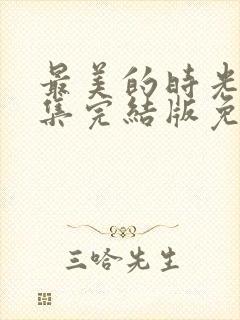 最美的時光
集完結版免
三哈先生